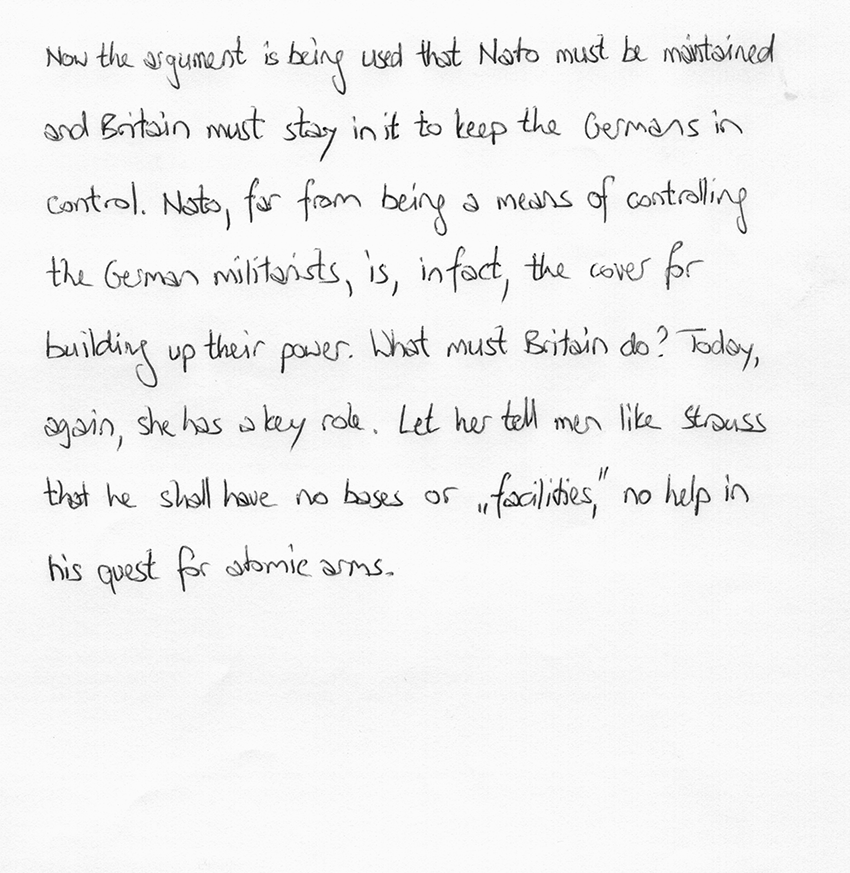 Now the argument is being used that Nato must be maintained
and Britain must stay in it to keep the Germans in
control. Nato, far from being a means of controlling
the German militarists, is, in fact, the cover for
building up their power. What must Britain do? Today,
again, she has a key role. Let her tell men like Strauss
that he shall have no bases or „facilities,” no help in
his quest for atomic arms.